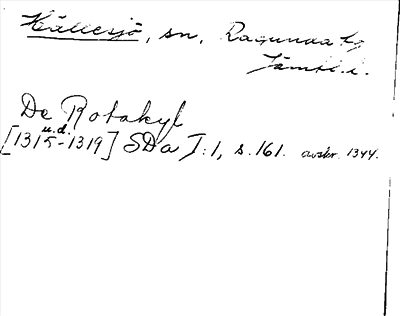 Hällesjö, sn, Ragunda tg
Jämtl. l.
De Rotakyl
u.d.
[1315-1319] SDa I:1, s. 161. avskr. 1344.